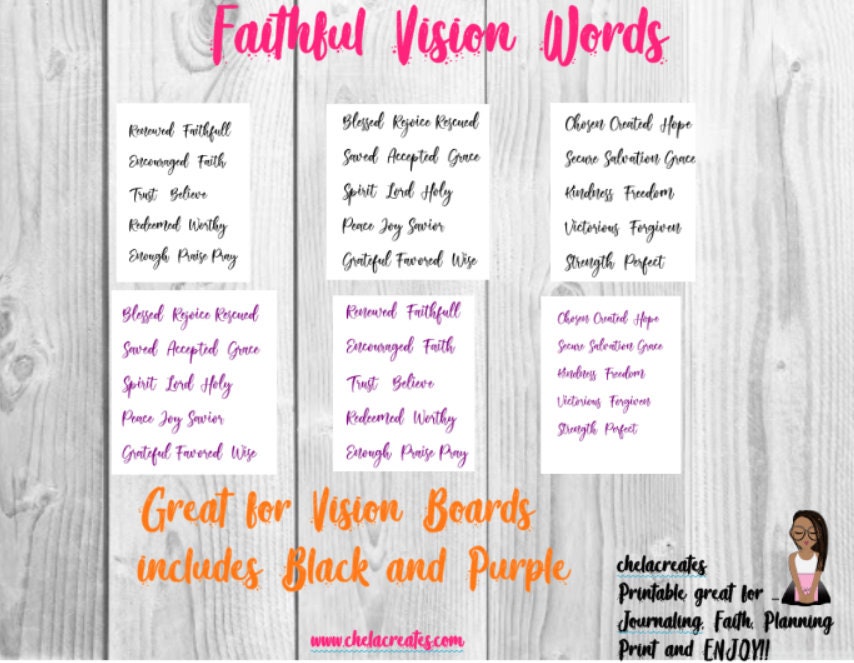 Faithful Vision Words
Renewed Faithfull
Encouraged Faith
Trust Believe
Redeemed Worthy
Enough Praise Pray
Blessed Rejoice Rescued
Saved Accepted Grace
Spirit Lord Holy
Peace Joy Savior
Grateful Favored Wise
Chosen Created Hope
Secure Salvation Grace
Kindness Freedom
Victorious Forgiven
Strength Perfect
Blessed Rejoice Rescued
Saved Accepted Grace
Spirit Lord Holy
Peace Joy Savior
Grateful Favored Wise
Renewed Faithfull
Encouraged Faith
Trust Believe
Redeemed Worthy
Enough Praise Pray
Chosen Created Hope
Secure Salvation Grace
Kindness Freedom
Victorious Forgiven
Strength Perfect
Great for Vision Boards
includes Black and Purple
www.chelacreates.com
chelacreates
Printable great for _
Journaling, Faith, Planning
Print and ENJOY!!